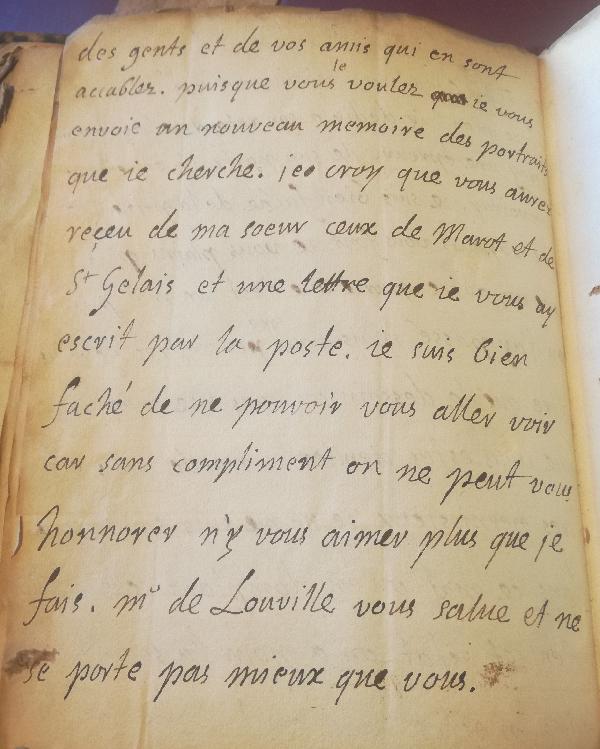 des gents et de vos amis qui en sont
accablez. puisque vous le voulez ie vous
envoie un nouveau memoire des portraits
que ie cherche. je croy que vous aurez
reçeu de ma soeur ceux de Marot et de
St Gelais et une lettre que ie vous ay
escrit par la poste. ie suis bien
faché de ne pouvoir vous aller voir
car sans compliment on ne peut vous
honnorer n'y vous aimer plus que je
fais. mr de Louville vous salue et ne
se porte pas mieux que vous.